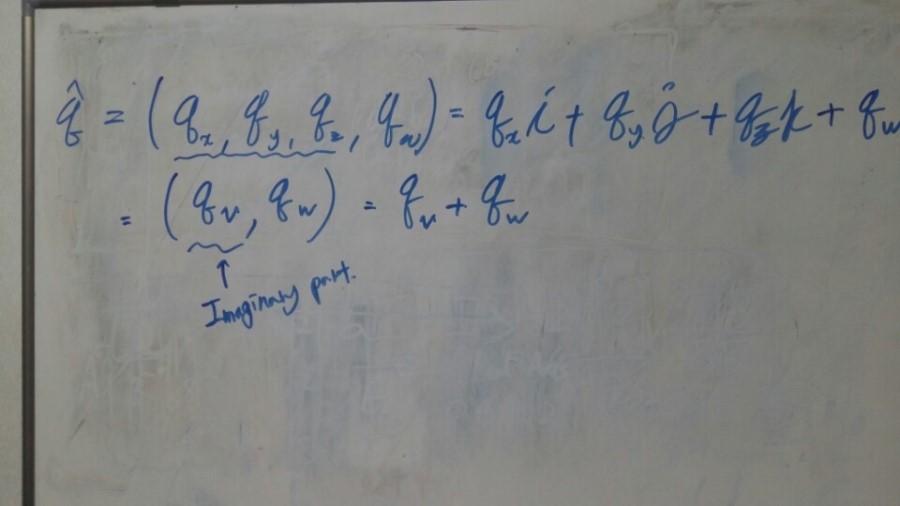 q̂ = (q_x, q_y, q_z, q_w) = q_x i + q_y j + q_z k + q_w
= (q_v, q_w) = q_v + q_w
↑
Imaginary part.